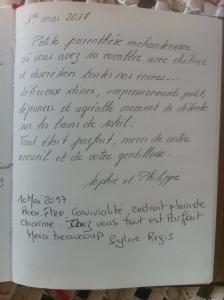 1er mai 2017
Petite parenthèse enchanteresse
où vous avez su combler avec chaleur
et discrétion toutes nos envies...
délicieux diners, impressionnants petits
déjeuners et agréable moment de détente
sur les bains de soleil.
Tout était parfait, merci de votre
accueil et de votre gentillesse.
Sophie et Philippe
10 Mai 2017
Bien-Etre, Convivialité, endroit plein de
Charme. Chez vous tout est Parfait
Merci beaucoup Sylvie Régis